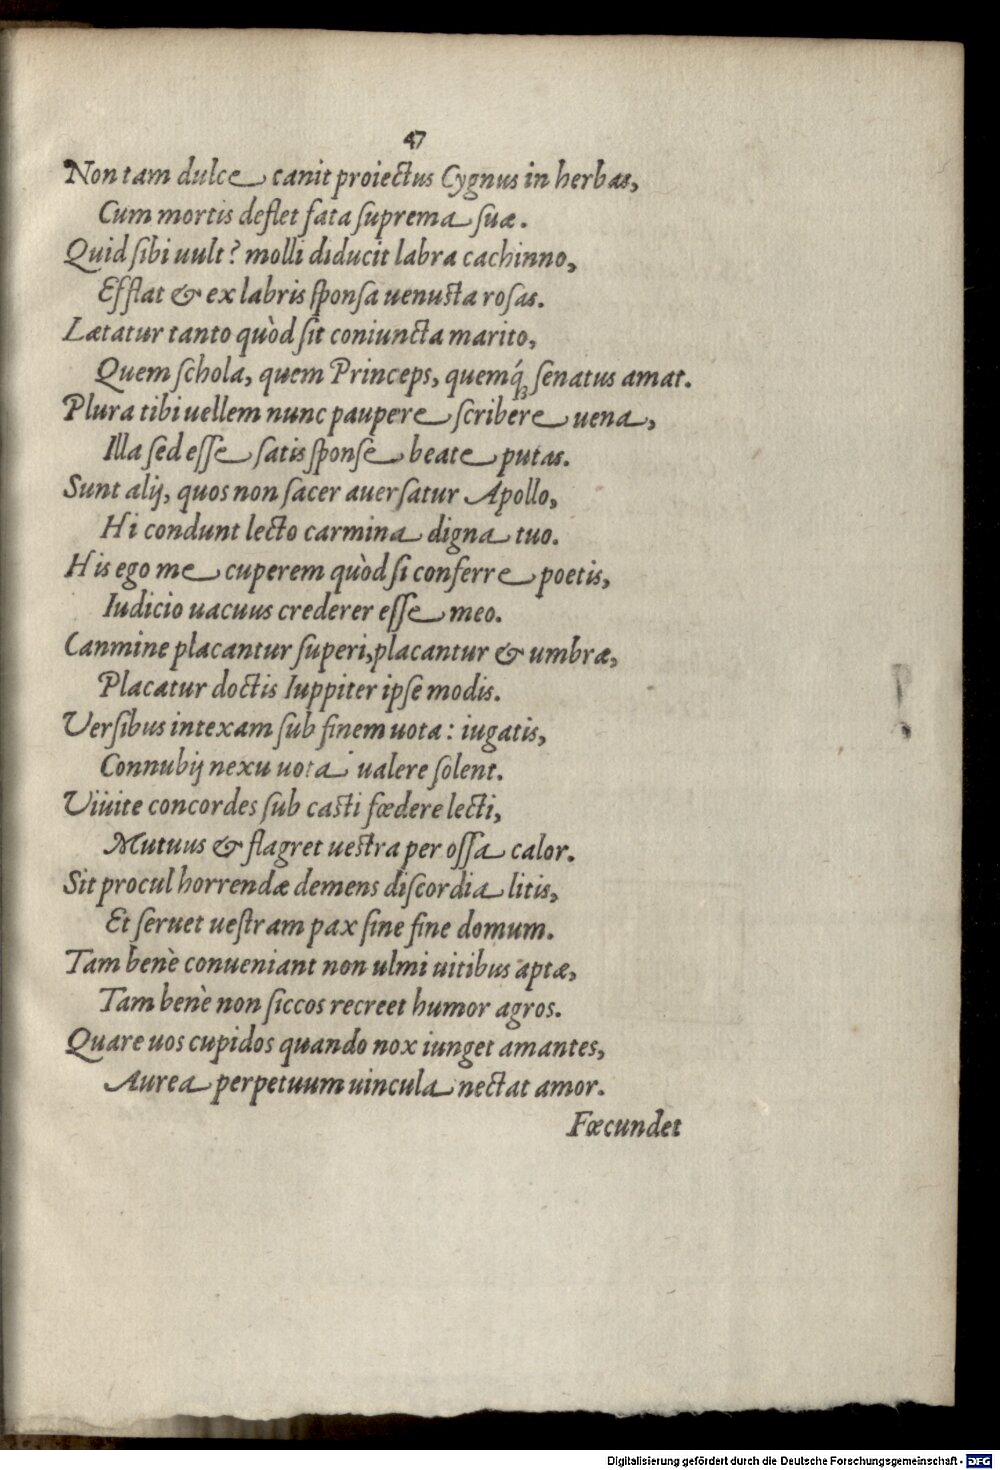 47
Non tam dulce canit proiectus Cygnus in herbas,
Cum mortis deflet fata suprema suæ.
Quid sibi uult? molli diducit labra cachinno,
Efflat & ex labris sponsa uenusta rosas.
Lætatur tanto quòd sit coniuncta marito,
Quem schola, quem Princeps, quemq́; senatus amat.
Plura tibi uellem nunc paupere scribere uena,
Illa sed esse satis sponse beate putas.
Sunt alij, quos non sacer auersatur Apollo,
Hi condunt lecto carmina digna tuo.
His ego me cuperem quòd si conferre poetis,
Iudicio uacuus crederer esse meo.
Canmine placantur superi, placantur & umbræ,
Placatur doctis Iuppiter ipse modis.
Versibus intexam sub finem uota: iugatis,
Connubij nexu uota ualere solent.
Viuite concordes sub casti fœdere lecti,
Mutuus & flagret uestra per ossa calor.
Sit procul horrendæ demens discordia litis,
Et seruet uestram pax sine fine domum.
Tam benè conueniant non ulmi uitibus aptæ,
Tam benè non siccos recreet humor agros.
Quare uos cupidos quando nox iunget amantes,
Aurea perpetuum uincula nectat amor.
Fœcundet
Digitalisierung gefördert durch die Deutsche Forschungsgemeinschaft - DFG